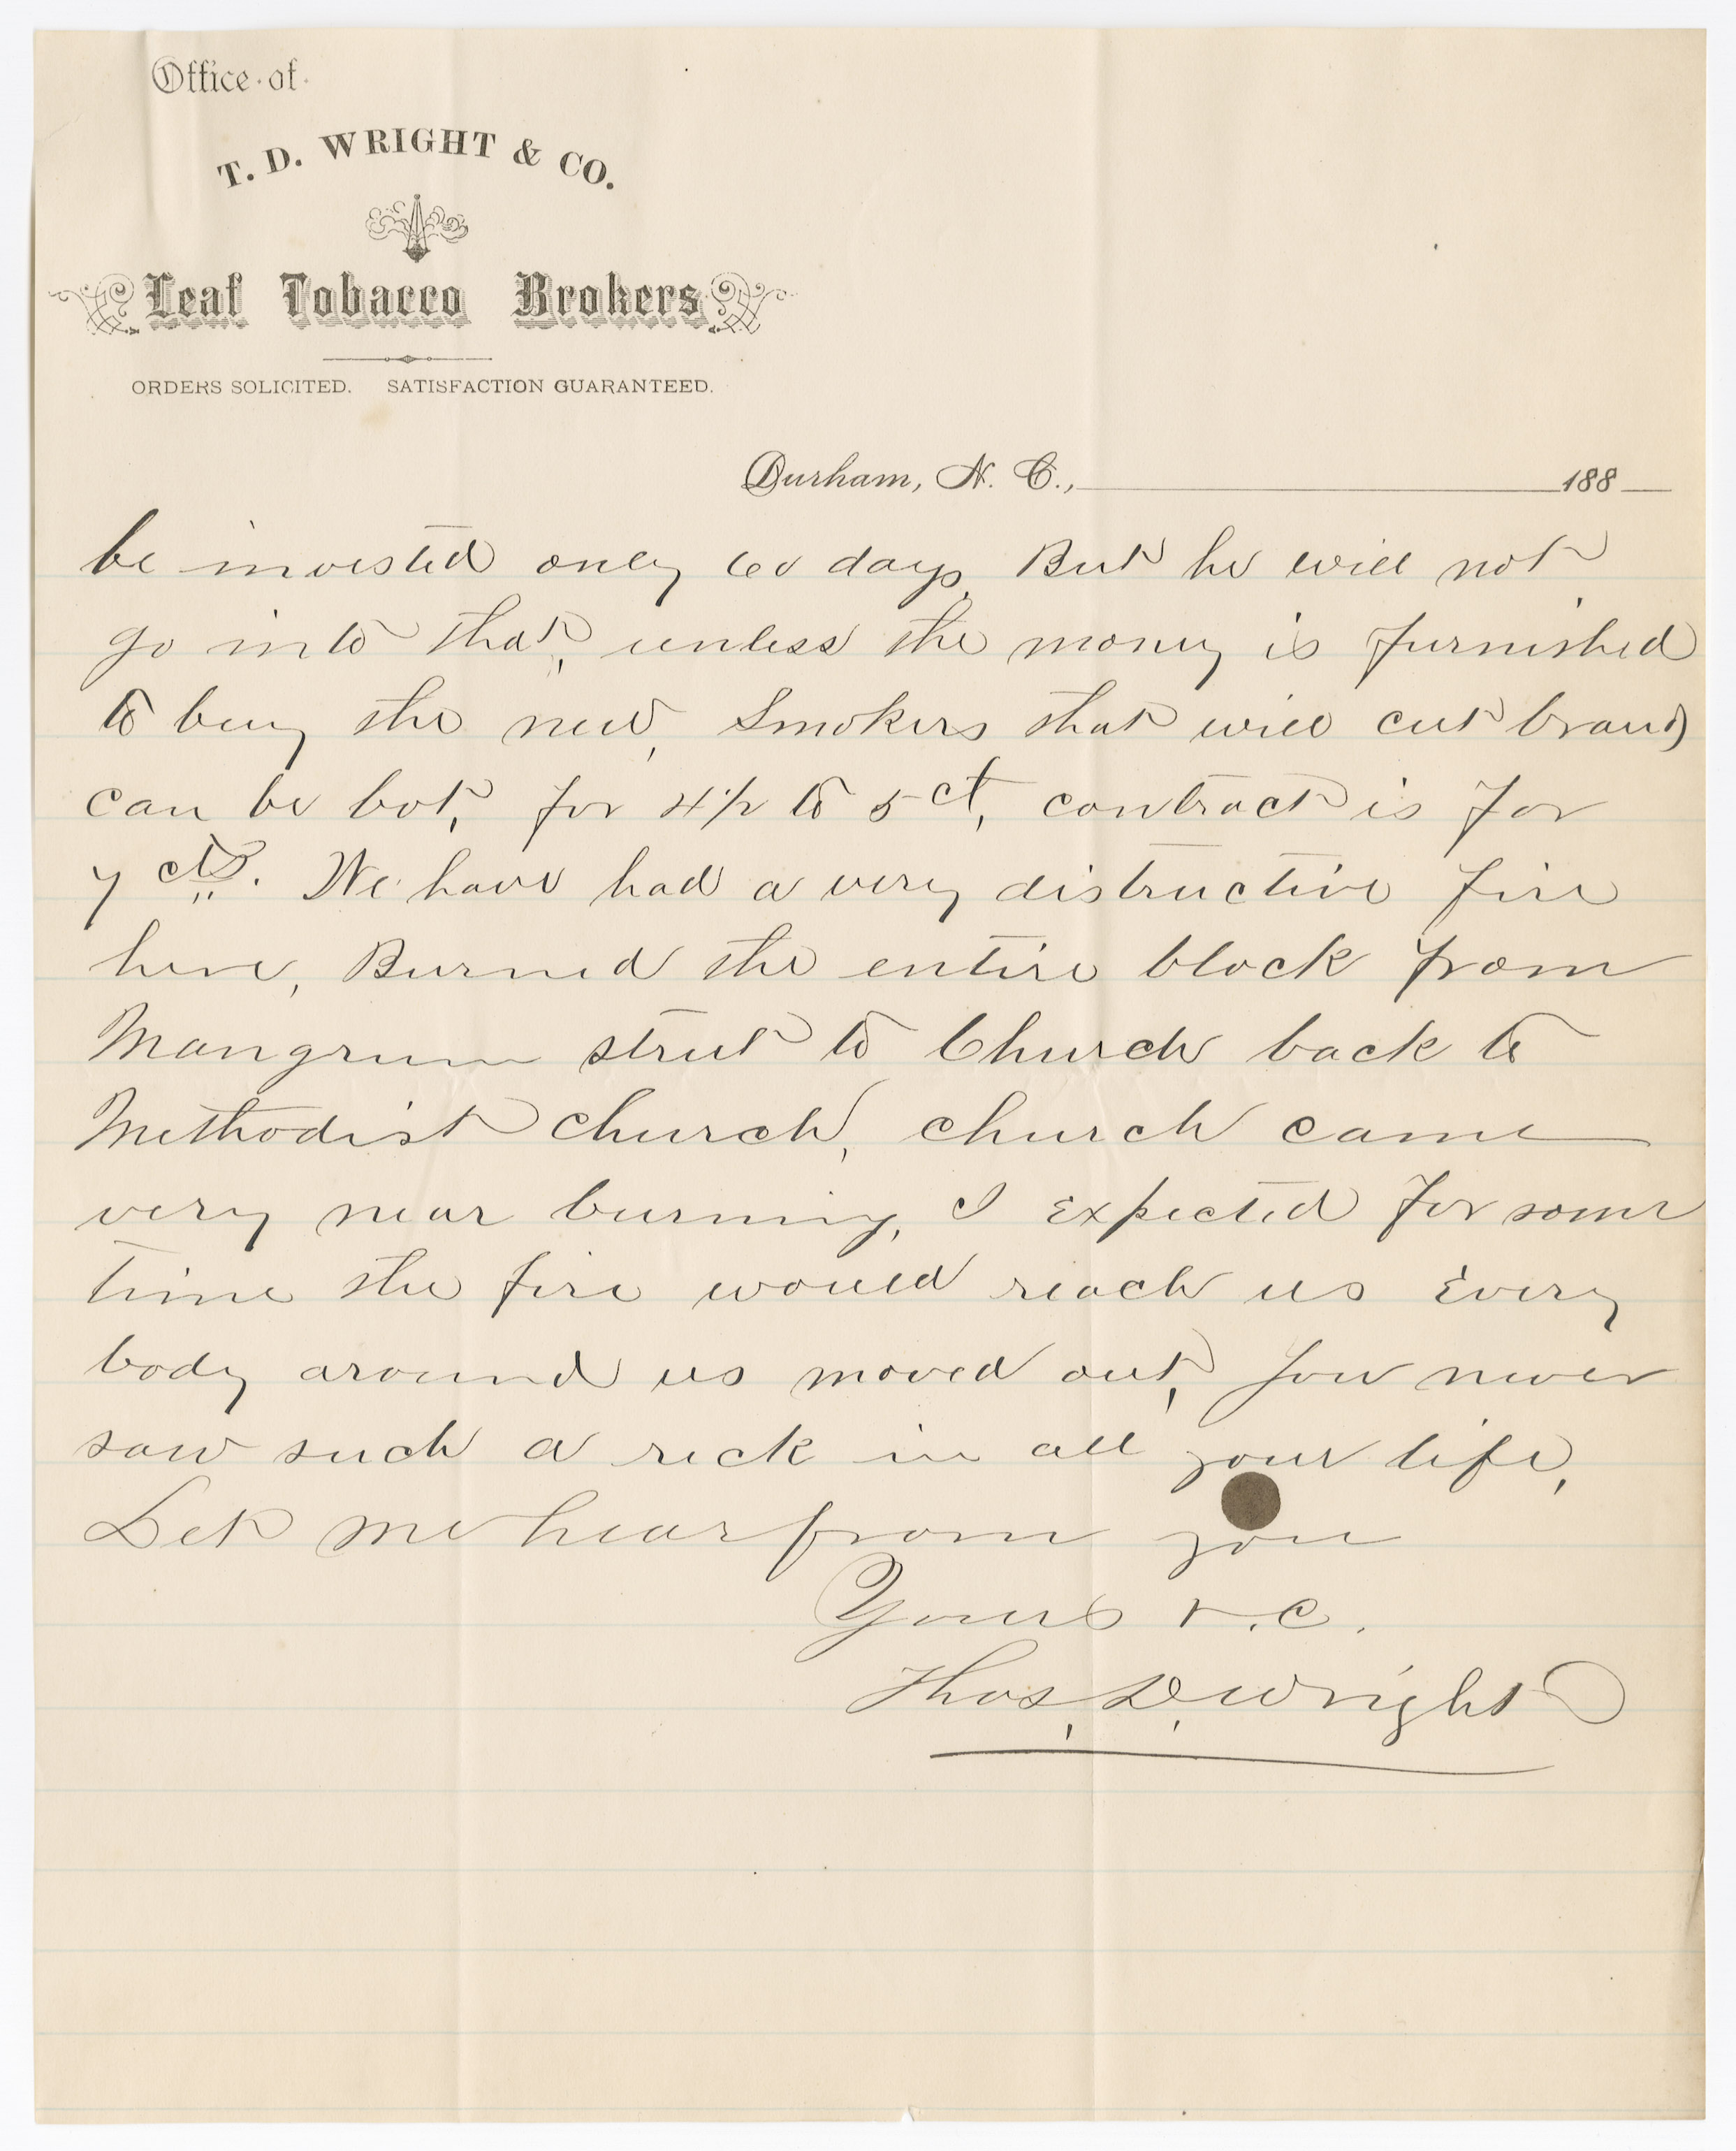 Office of
T. D. WRIGHT & CO.
Leaf Tobacco Brokers
ORDERS SOLICITED. SATISFACTION GUARANTEED.
Durham, N. C., 188
be invested only 60 days, But he will not
go into that, unless the money is furnished
to buy the new, Smokers that will cut brand
can be bot, for 4½ to 5 ct, contract is for
7 cts. We have had a very distructive fire
here, Burned the entire block from
Mangrum street to Church back to
Methodist church, church came
very near burning, I expected for some
time the fire would reach us Every
body around us moved out, you never
saw such a reck in all your life,
Let me hear from you
Yours &.c.
Thos, D, Wright